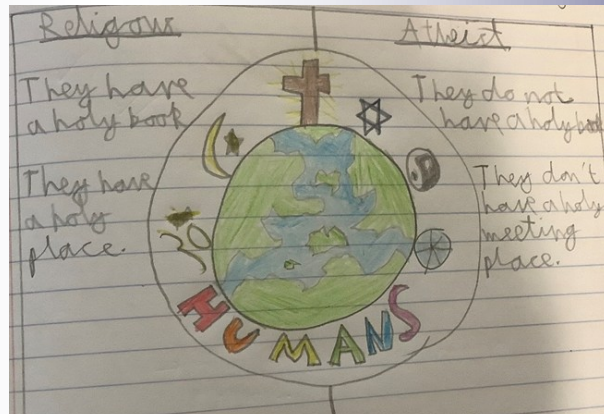 Religous
They have
a holy book
They have
a holy
place.
HUMANS
Atheist
They do not
have a holy book
They don't
have a holy
meeting
place.